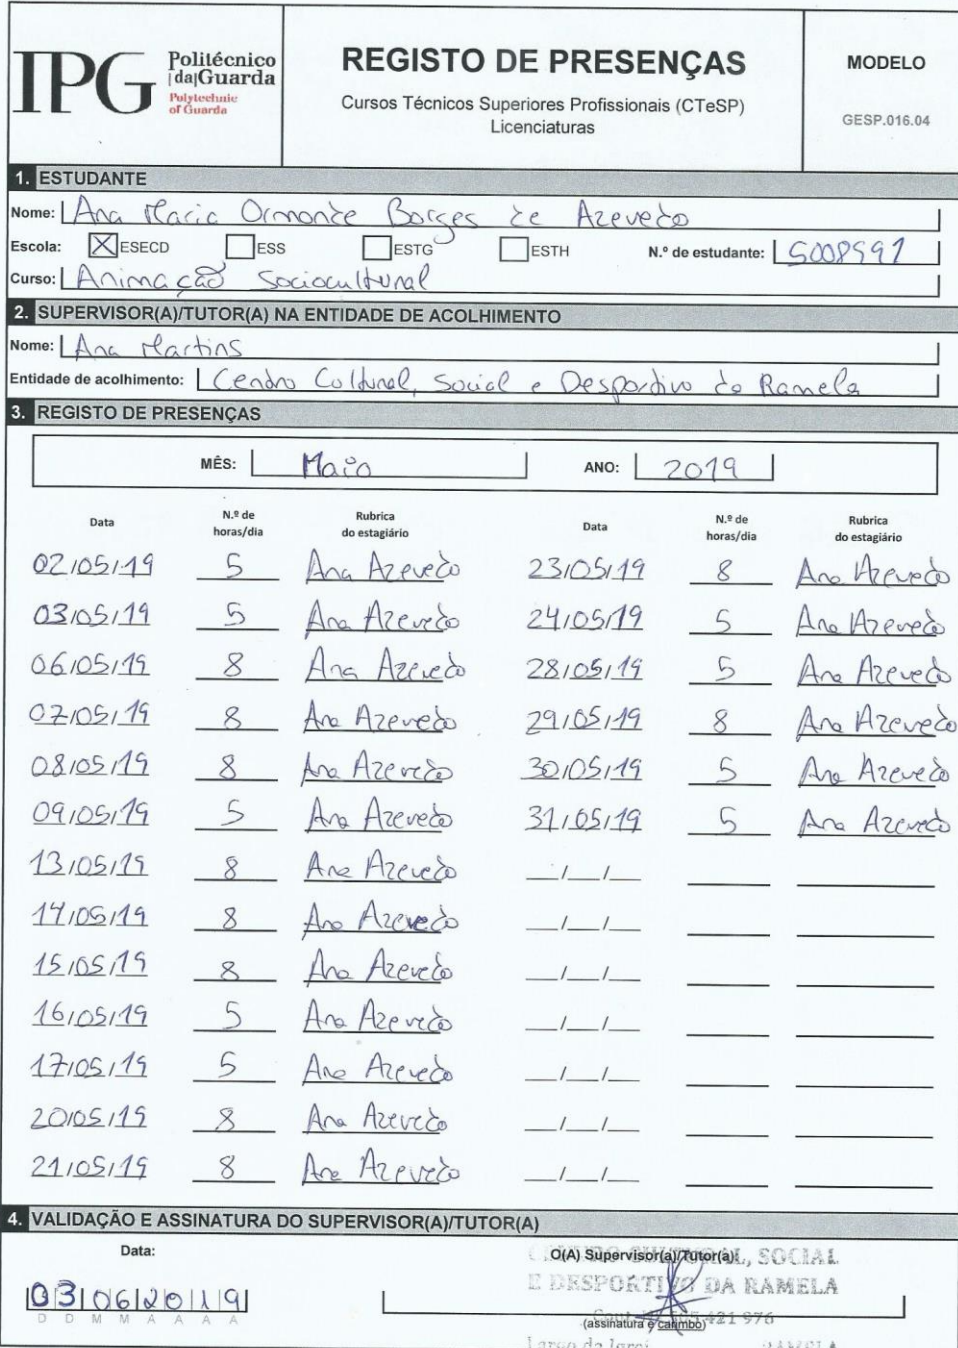 IPG Politécnico |da|Guarda
Polytechnic of Guarda
REGISTO DE PRESENÇAS
Cursos Técnicos Superiores Profissionais (CTeSP)
Licenciaturas
MODELO
GESP.016.04
1. ESTUDANTE
Nome: Ana Maria Ormonde Borges de Azevedo
Escola: X ESECD ESS ESTG ESTH N.º de estudante: 5008591
Curso: Animação Sociocultural
2. SUPERVISOR(A)/TUTOR(A) NA ENTIDADE DE ACOLHIMENTO
Nome: Ana Martins
Entidade de acolhimento: Centro Cultural, Social e Desportivo da Ramela
3. REGISTO DE PRESENÇAS
MÊS: Maio ANO: 2019
Data N.º de horas/dia Rubrica do estagiário Data N.º de horas/dia Rubrica do estagiário
02/05/19 5 Ana Azevedo 23/05/19 8 Ana Azevedo
03/05/19 5 Ana Azevedo 24/05/19 5 Ana Azevedo
06/05/19 8 Ana Azevedo 28/05/19 5 Ana Azevedo
07/05/19 8 Ana Azevedo 29/05/19 8 Ana Azevedo
08/05/19 8 Ana Azevedo 30/05/19 5 Ana Azevedo
09/05/19 5 Ana Azevedo 31/05/19 5 Ana Azevedo
13/05/19 8 Ana Azevedo __/__/__
14/05/19 8 Ana Azevedo __/__/__
15/05/19 8 Ana Azevedo __/__/__
16/05/19 5 Ana Azevedo __/__/__
17/05/19 5 Ana Azevedo __/__/__
20/05/19 8 Ana Azevedo __/__/__
21/05/19 8 Ana Azevedo __/__/__
4. VALIDAÇÃO E ASSINATURA DO SUPERVISOR(A)/TUTOR(A)
Data: O(A) Supervisor(a)/Tutor(a):
CENTRO CULTURAL, SOCIAL
E DESPORTIVO DA RAMELA
03062019
D D M M A A A A
421 976
(assinatura e carimbo)
RAMELA